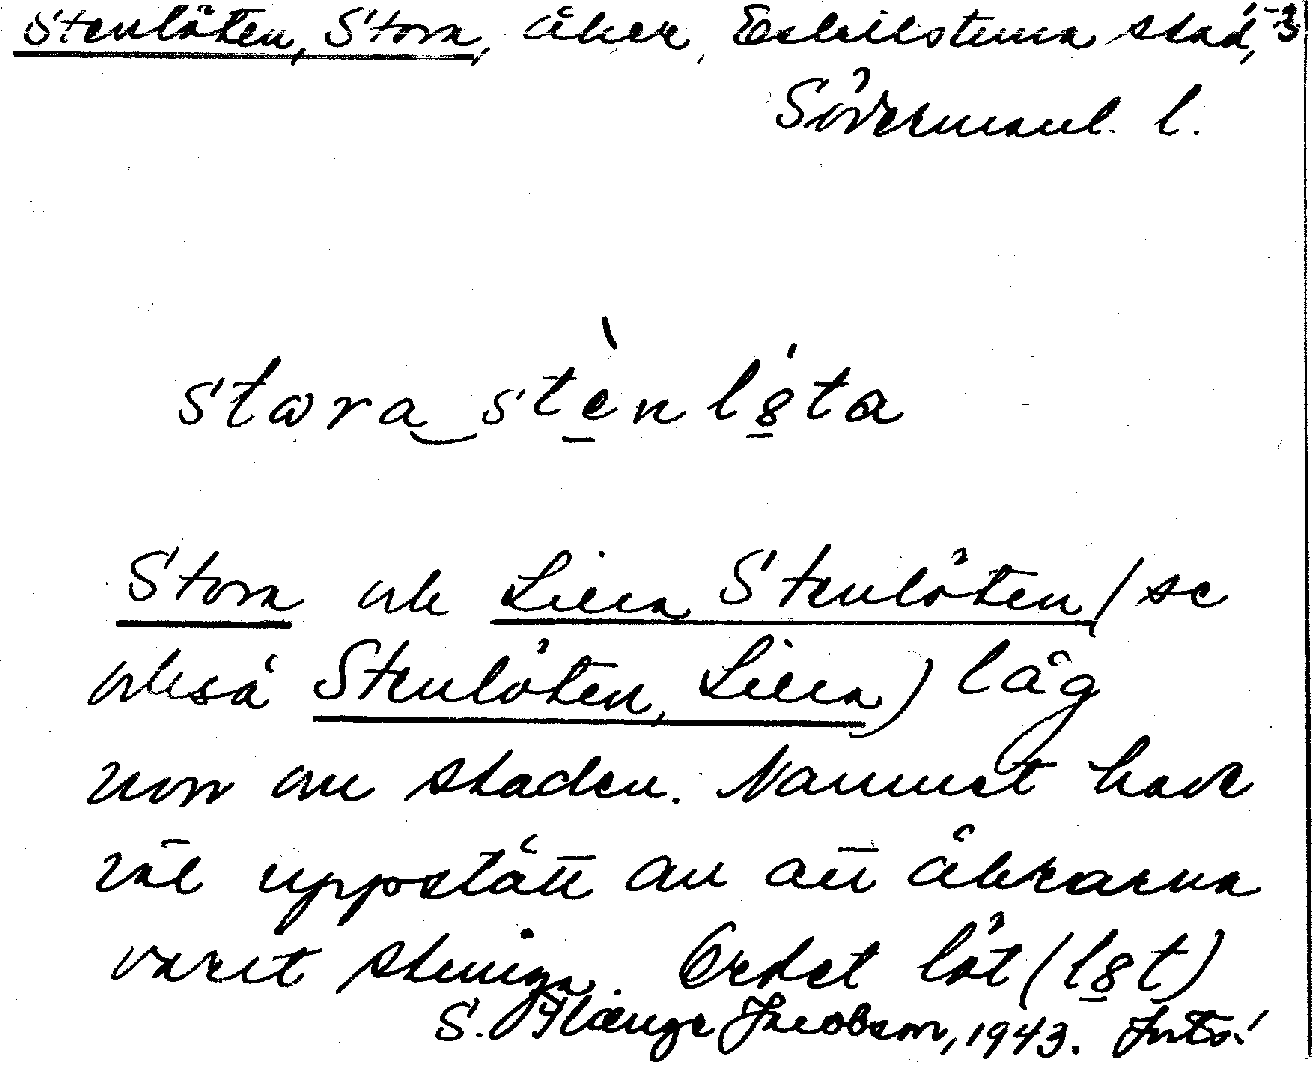 Stenlöten, Stora, åker, Eskilstuna stad, 3
Södermanl. l.
stora stènl8ta
Stora och Lilla Stenlöten (se
också Stenlöten, Lilla) låg
norr om staden. Namnet have
väl uppstått av att åkrarna
varit steniga. Ordet löt (l8t)
S. Jacobson, 1943. Forts!